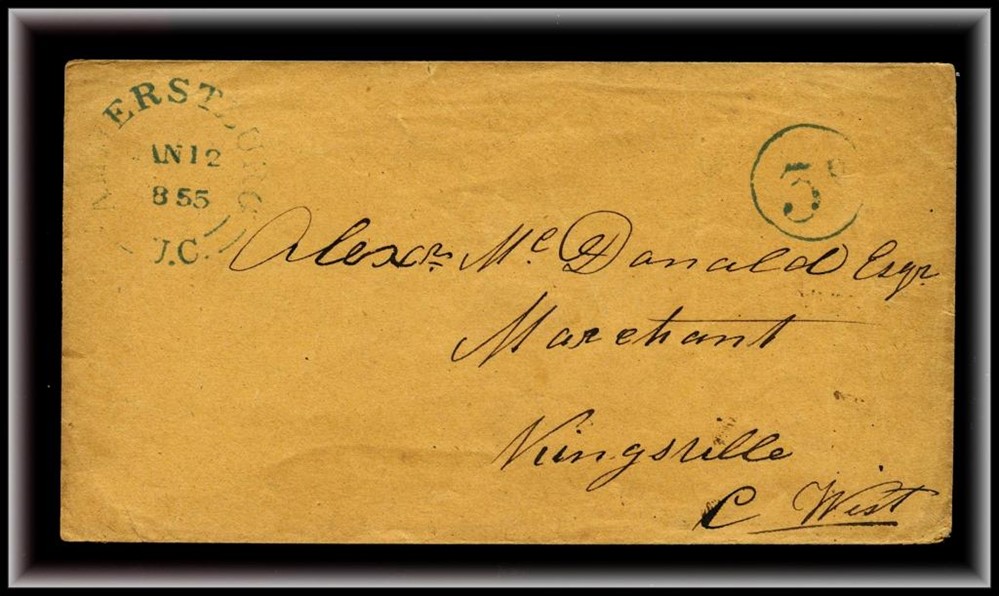 AMHERSTBURG
AN 12
855
U.C.
3
Alexr. Mc. Donald Esqr.
Merchant
Kingsville
C West